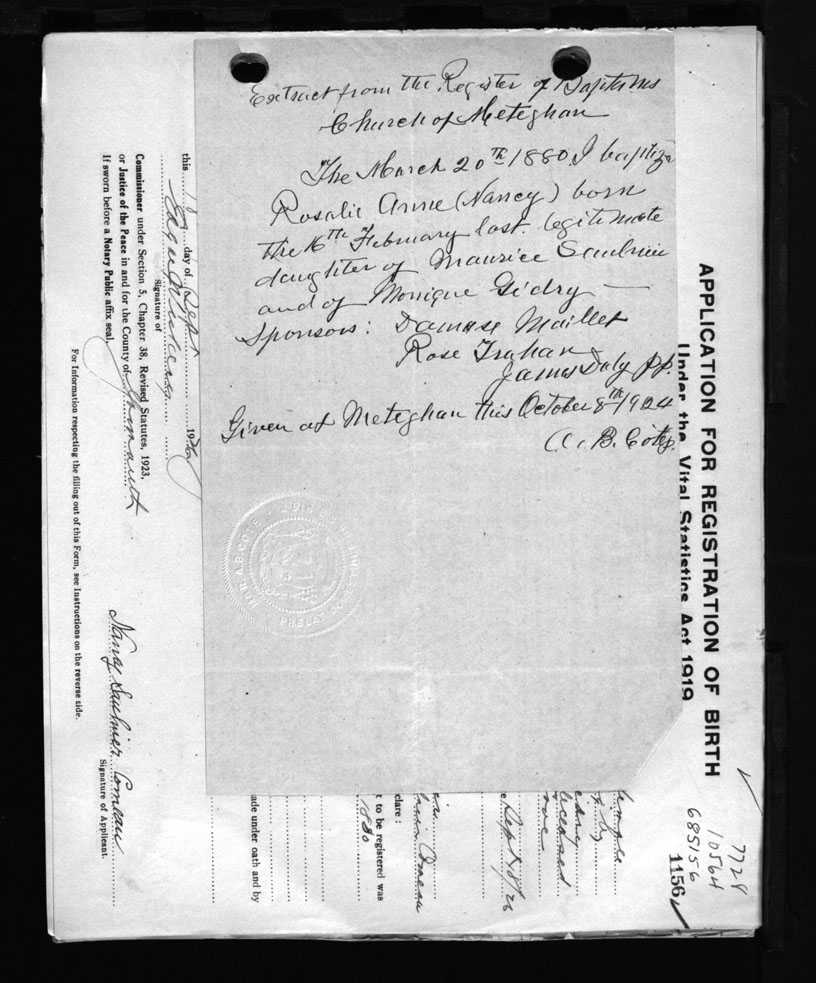 Extract from the Register of Baptisms
Church of Meteghan
The March 20th 1880, I baptize
Rosalie Anne (Nancy) born
the 16th February last. legitimate
daughter of Maurice Saulnier
and of Monique Gidry —
Sponsors: Damase Maillet
Rose Trahan
James Daly pp.
Given at Meteghan this October 8th 1924
A. B. Cote
APPLICATION FOR REGISTRATION OF BIRTH
Under the Vital Statistics Act 1919
7728
10564
685156
1156
this day of Sept 19
Signature of
Commissioner under Section 5, Chapter 38, Revised Statutes, 1923,
or Justice of the Peace in and for the County of Yarmouth
If sworn before a Notary Public affix seal.
For Information respecting the filling out of this Form, see Instructions on the reverse side.
Nancy Saulnier Comeau
Signature of Applicant.
ade under oath and by
t to be registered was
1880
clare :
Comeau
Sept 18/26